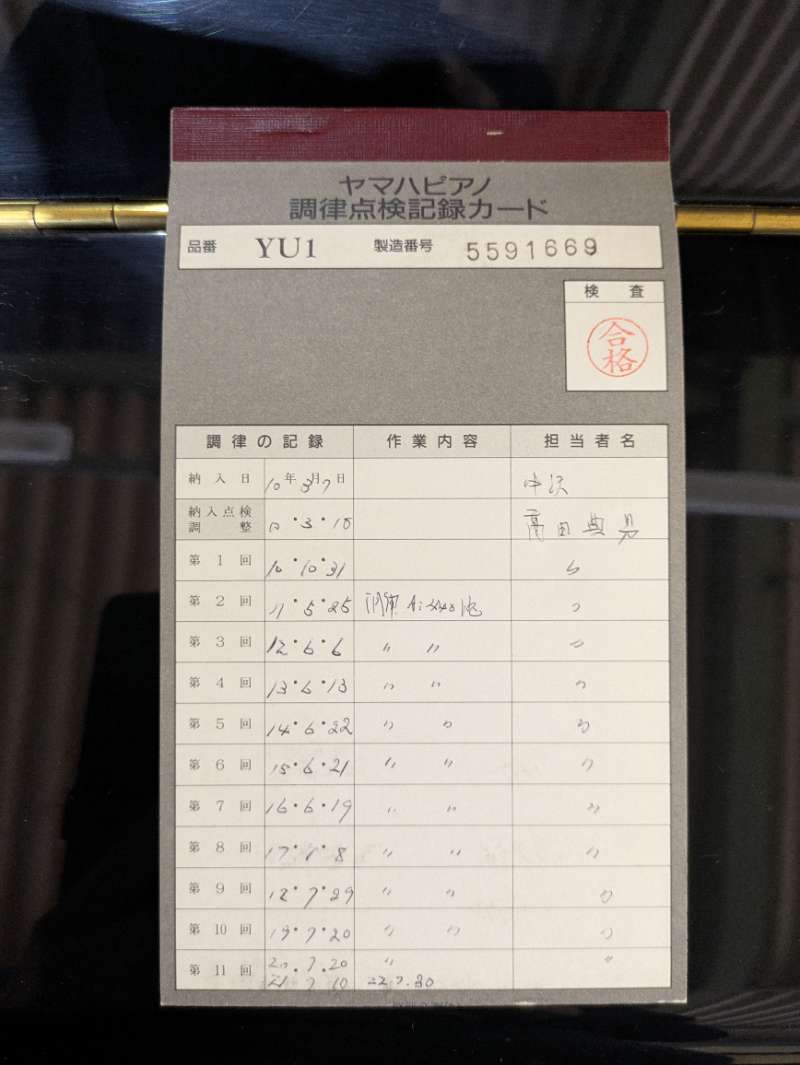 ヤマハピアノ
調律点検記録カード
品番 YU1 製造番号 5591669
検査
合格
調律の記録 作業内容 担当者名
納入日 10年3月7日 中沢
納入点検調整 10・3・18 高田
第1回 10・10・31 〃
第2回 11・5・25 調律 〃
第3回 12・6・6 〃 〃 〃
第4回 13・6・13 〃 〃 〃
第5回 14・6・22 〃 〃 〃
第6回 15・6・21 〃 〃 〃
第7回 16・6・19 〃 〃 〃
第8回 17・ ・8 〃 〃 〃
第9回 ・7・29 〃 〃 〃
第10回 19・7・20 〃 〃 〃
第11回 20.7.20 〃 〃
21 7 10 22.7.30